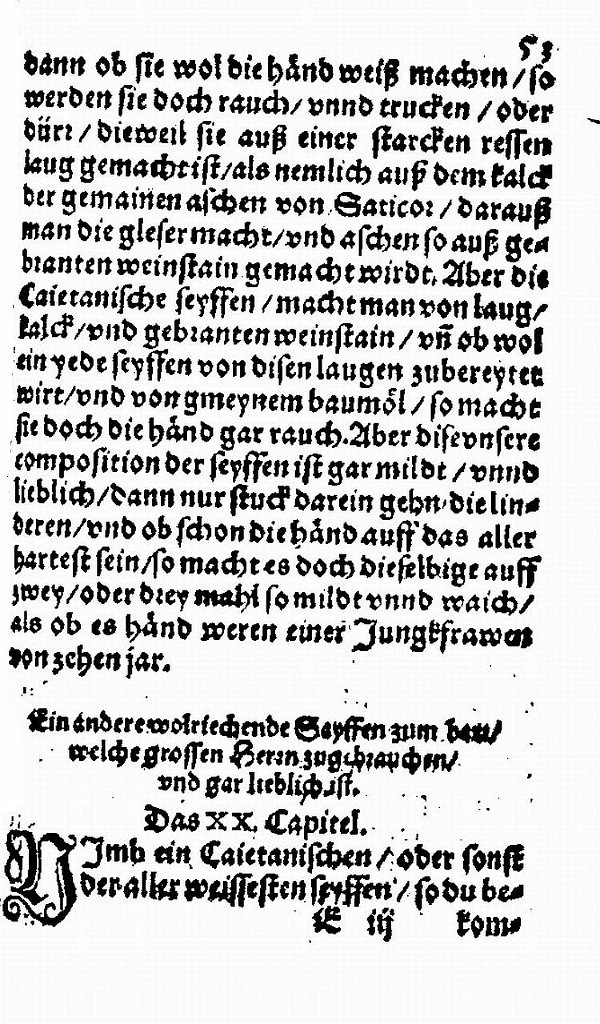 53
dann ob sie wol die händ weiß machen / so
werden sie doch rauch / vnnd trucken / oder
dürr / dieweil sie auß einer starcken ressen
laug gemacht ist / als nemlich auß dem kalck
der gemainen aschen von Saticor / darauß
man die gleser macht / vnd aschen so auß ge⸗
branten weinstain gemacht wirdt. Aber die
Caietanische seyffen / macht man von laug /
kalck / vnd gebranten weinstain / vñ ob wol
ein yede seyffen von disen laugen zubereytet
wirt / vnd von gmeynem baumöl / so macht
sie doch die händ gar rauch. Aber dise vnsere
composition der seyffen ist gar mildt / vnnd
lieblich / dann nur stuck darein gehn / die lin⸗
deren / vnd ob schon die händ auff das aller
hartest sein / so macht es doch dieselbige auff
zwey / oder drey mahl so mildt vnnd waich /
als ob es händ weren einer Jungkfrawen
von zehen jar.
Ein andere wolriechende Seyffen zum bart /
welche grossen Herrn zugebrauchen /
vnd gar lieblich ist.
Das XX. Capitel.
NImb ein Caietanischen / oder sonst
der aller weissesten seyffen / so du be⸗
E iij kom⸗